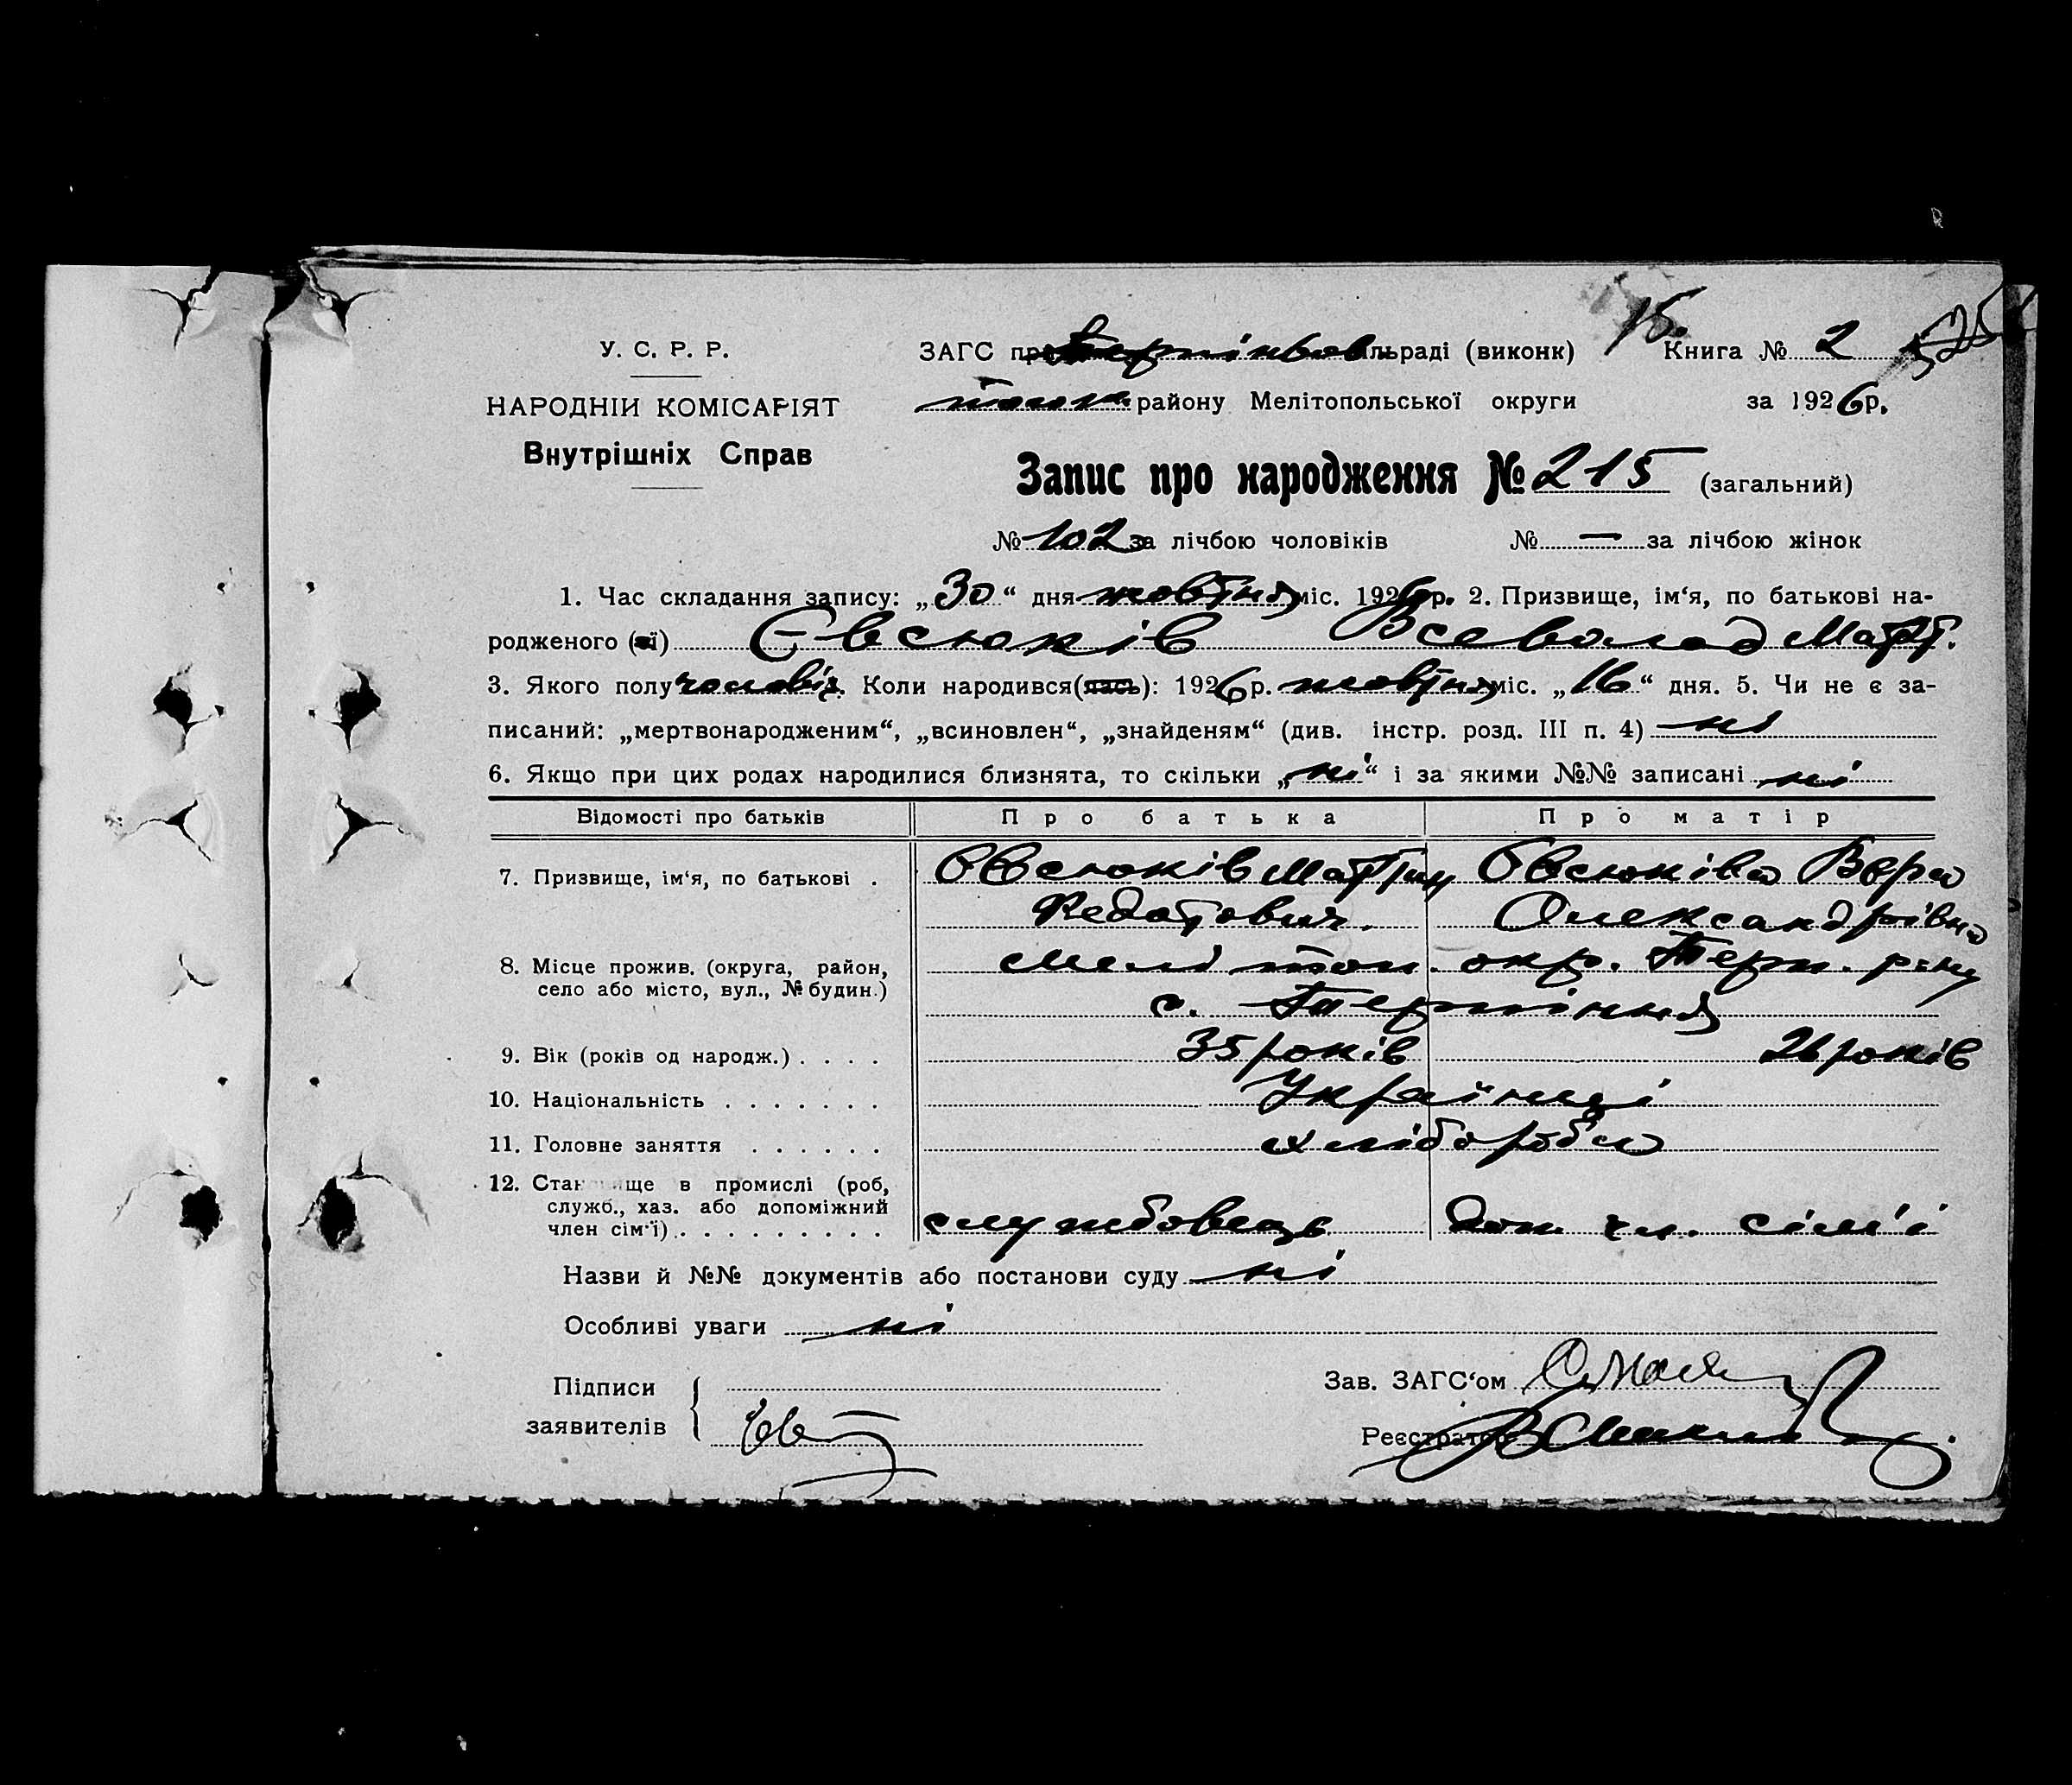 15.
525
У. С. Р. Р.
ЗАГС при Терпіньов. сільраді (виконк) Книга № 2
НАРОДНІЙ КОМІСАРІЯТ
району Мелітопольської округи за 1926 р.
Внутрішніх Справ
Запис про народження № 215 (загальний)
№ 102 за лічбою чоловіків № — за лічбою жінок
1. Час складання запису: „30“ дня жовтня міс. 1926 р. 2. Призвище, ім‘я, по батькові на-
родженого (ої) Євсюків Всеволод Март.
3. Якого полу чоловіч. Коли народився(лась): 1926 р. жовтня міс. „16“ дня. 5. Чи не є за-
писаний: „мертвонародженим“, „всиновлен“, „знайденям“ (див. інстр. розд. III п. 4) ні
6. Якщо при цих родах народилися близнята, то скільки „ні“ і за якими №№ записані ні
Відомості про батьків Про батька Про матір
7. Призвище, ім‘я, по батькові . Євсюків Мартин Євсюківа Вера
Федотович. Олександрівна
8. Місце прожив. (округа, район, Меліттоп. окр. Терп. р-ну
село або місто, вул., № будин.) с. Терпіння
9. Вік (років од народж.) . . . . 35 років 26 років
10. Національність . . . . . . . Українці
11. Головне заняття . . . . . . хлібороби
12. Становище в промислі (роб,
служб., хаз. або допоміжний
член сім‘ї) . . . . . . . . . . службовець доп. чл. сім'ї
Назви й №№ документів або постанови суду ні
Особливі уваги ні
Підписи Зав. ЗАГС‘ом
заявителів Реєстратор